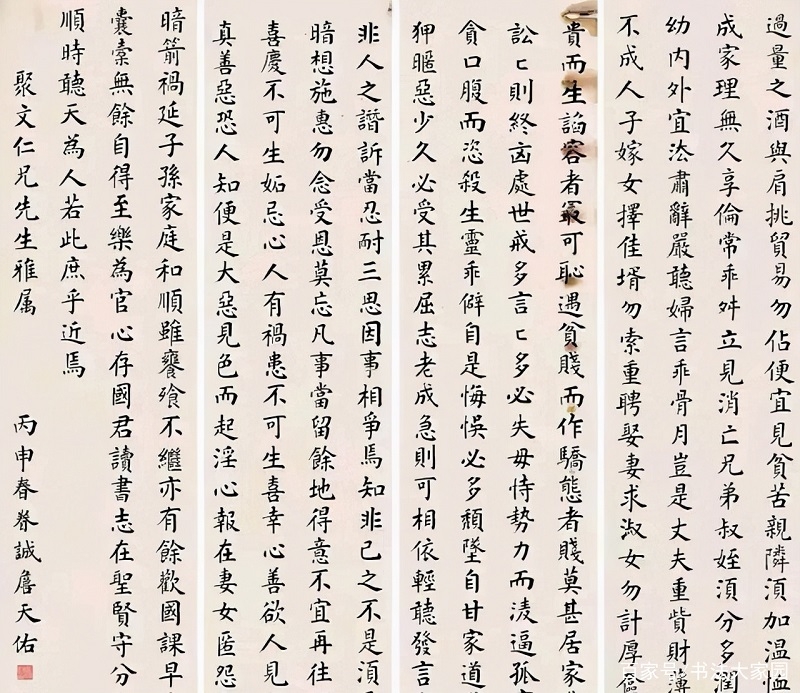 過量之酒與肩挑貿易勿佔便宜見貧苦親隣須加温恤
成家理無久享倫常乖舛立見消亡兄弟叔姪須分多潤
幼內外宜法肅辭嚴聽婦言乖骨月豈是丈夫重貲財薄
不成人子嫁女擇佳壻勿索重聘娶妻求淑女勿計厚奩
貴而生諂容者最可恥遇貧賤而作驕態者賤莫甚居家
訟〻則終凶處世戒多言〻多必失毋恃勢力而淩逼孤
貪口腹而恣殺生靈乖僻自是悔悞必多頹墮自甘家道
狎暱惡少久必受其累屈志老成急則可相依輕聽發言
非人之譖訴當忍耐三思因事相爭焉知非己之不是須
暗想施惠勿念受恩莫忘凡事當留餘地得意不宜再往
喜慶不可生妬忌心人有禍患不可生喜幸心善欲人見
真善惡恐人知便是大惡見色而起淫心報在妻女匿怨
暗箭禍延子孫家庭和順雖饔飧不繼亦有餘歡國課早
囊橐無餘自得至樂為官心存國君讀書志在聖賢守分
順時聽天為人若此庶乎近焉
聚文仁兄先生雅属 丙申春眷誠詹天佑
百家号/书法大家园